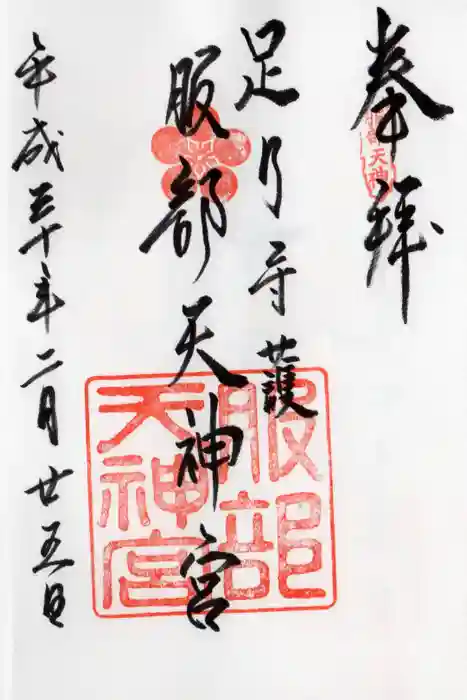 奉拝
足の守護
服部天神宮
平成三十年二月廿五日
服部
天神宮